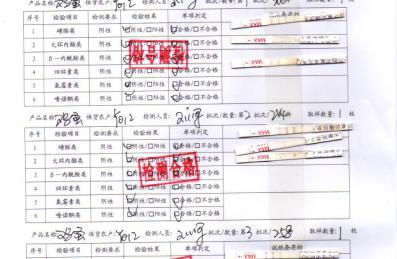 产品名称:鸡蛋 供货农户:1012 检测人员: 批次/数量:第 批次/ 件 取样数量: 1 枚
序号 检验项目 检测要求 检验结果 单项判定
1 磺胺类 阴性 ☑阴性/☐阳性 ☑合格/☐不合格
2 大环内酯类 阴性 ☑阴性/☐阳性 ☑合格/☐不合格
3 β-内酰胺类 阴性 ☑阴性/☐阳性 ☑合格/☐不合格
4 四环素类 阴性 ☑阴性/☐阳性 ☑合格/☐不合格
5 氟霉素类 阴性 ☑阴性/☐阳性 ☑合格/☐不合格
6 喹诺酮类 阴性 ☑阴性/☐阳性 ☑合格/☐不合格
检测合格
MAX
MAX
产品名称:鸡蛋 供货农户:1012 检测人员: 批次/数量:第 2 批次/ 264件 取样数量: 1 枚
序号 检验项目 检测要求 检验结果 单项判定
1 磺胺类 阴性 ☑阴性/☐阳性 ☑合格/☐不合格
2 大环内酯类 阴性 ☑阴性/☐阳性 ☑合格/☐不合格
3 β-内酰胺类 阴性 ☑阴性/☐阳性 ☑合格/☐不合格
4 四环素类 阴性 ☑阴性/☐阳性 ☑合格/☐不合格
5 氟霉素类 阴性 ☑阴性/☐阳性 ☑合格/☐不合格
6 喹诺酮类 阴性 ☑阴性/☐阳性 ☑合格/☐不合格
检测合格
MAX
MAX
产品名称:鸡蛋 供货农户:1012 检测人员: 批次/数量:第 3 批次/ 258 取样数量: 1 枚
序号 检验项目 检测要求 检验结果 单项判定 试纸条存档